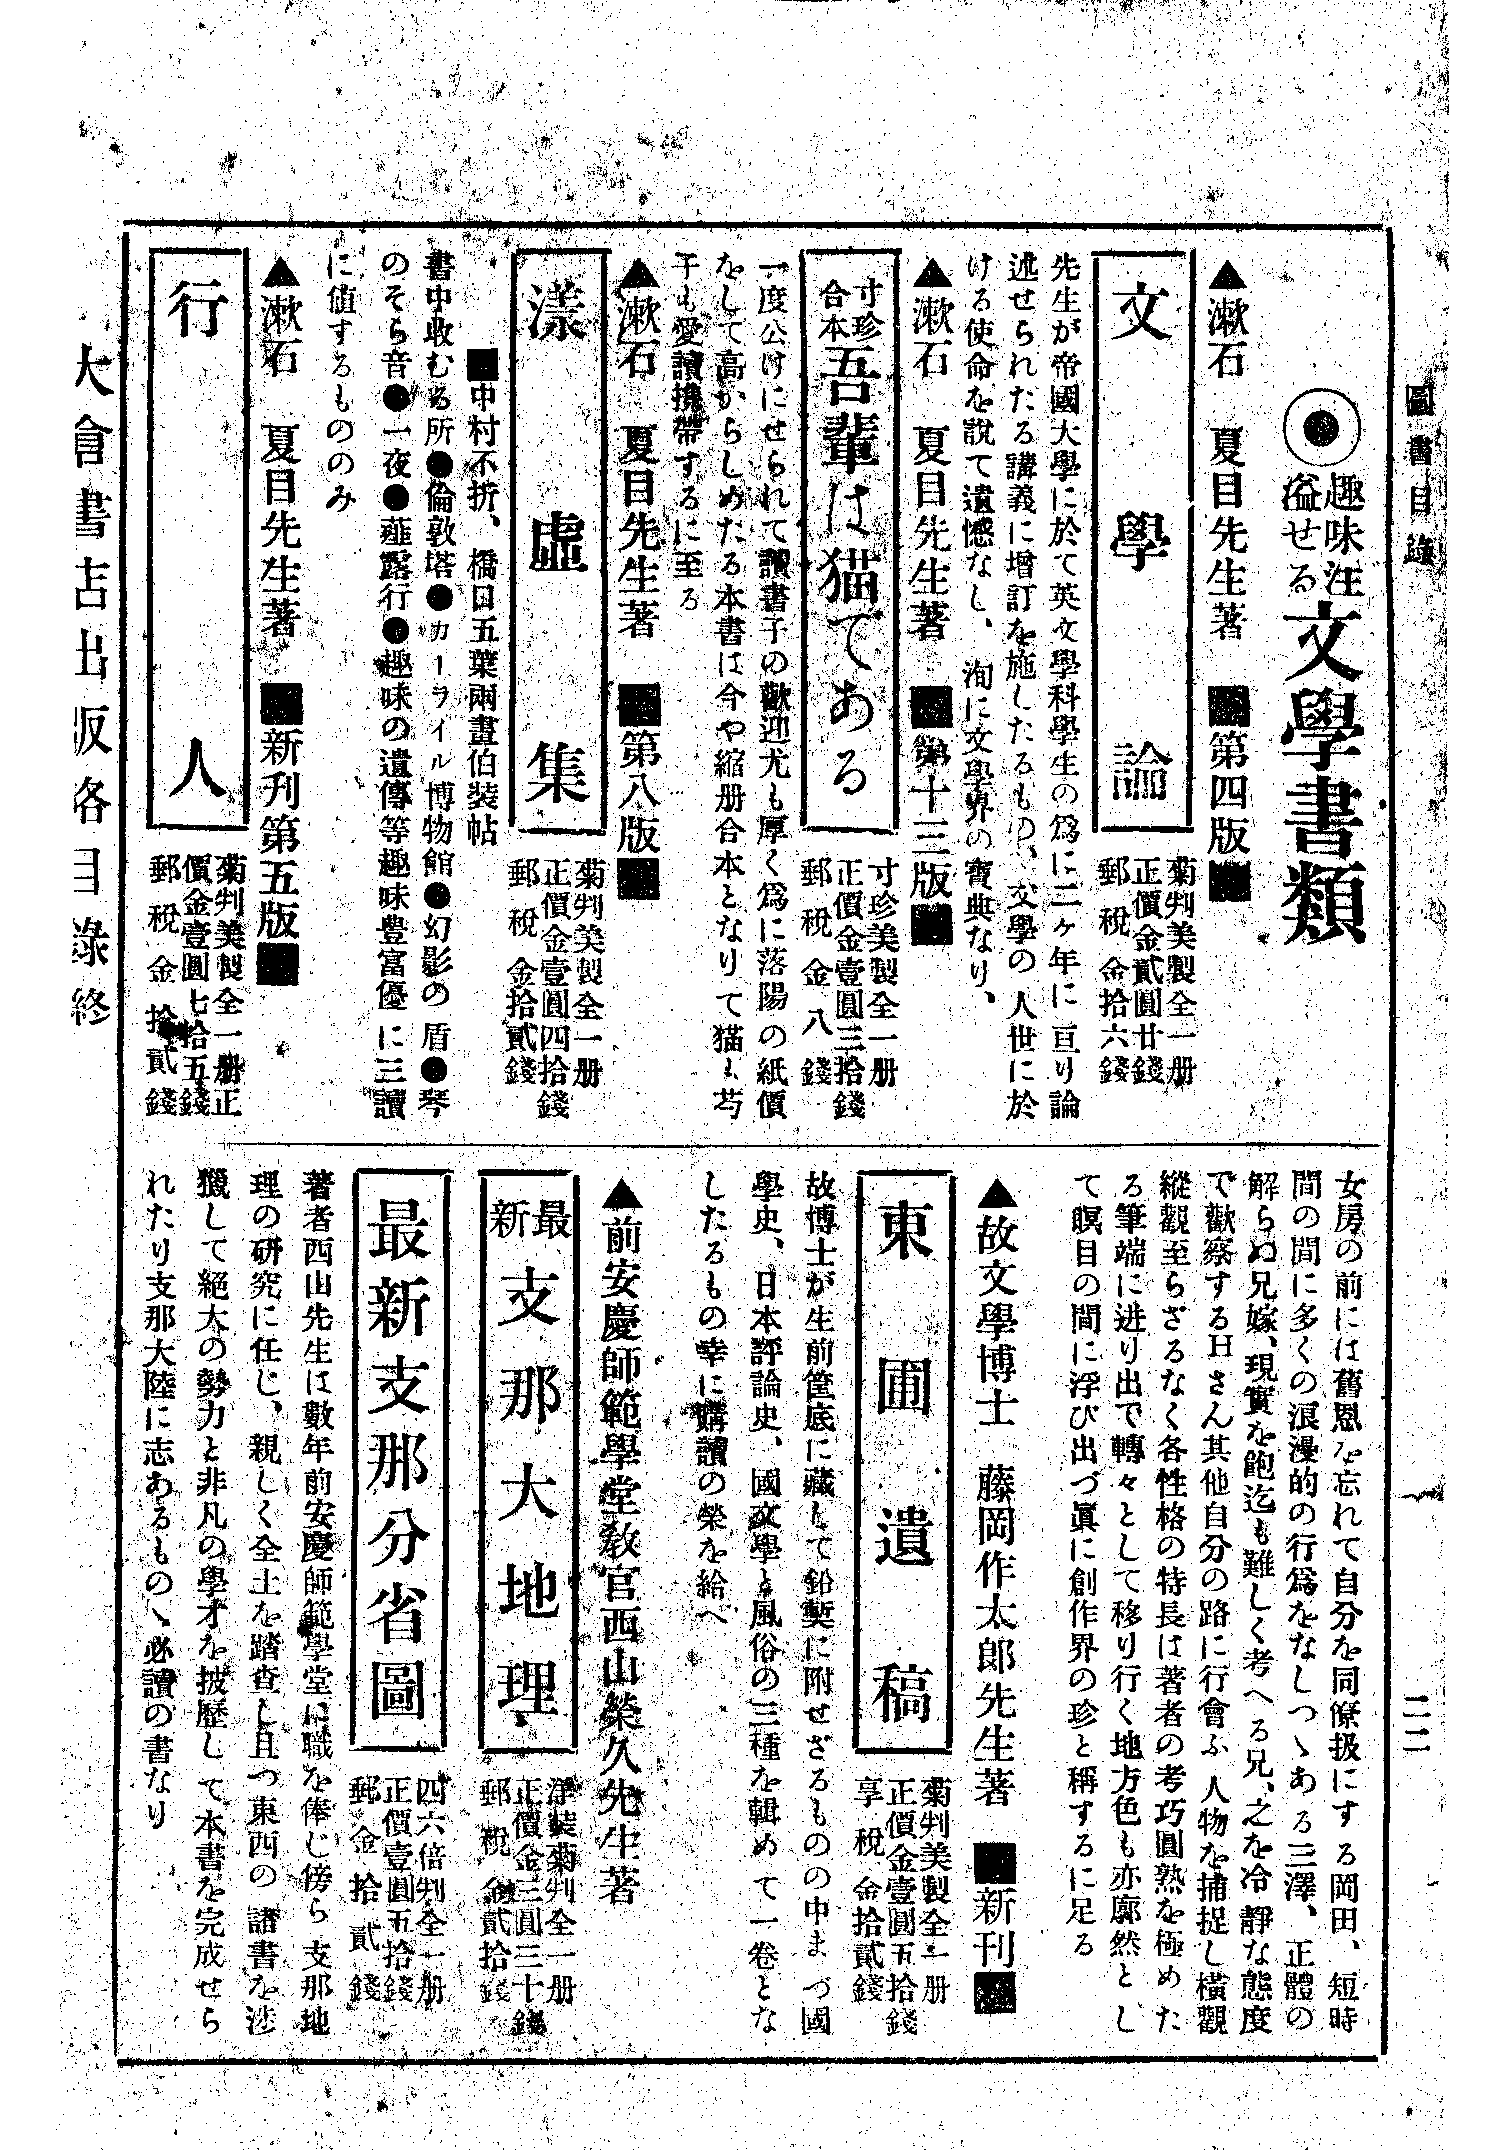 圖書目錄
二二
◉趣味汪溢せる文學書類
▲漱石 夏目先生著 ■第四版■
文學論
菊判美製全一册
正價金貳圓廿錢
郵稅金拾六錢
先生が帝國大學に於て英文學科學生の爲に二ヶ年に亘り論
述せられたる講義に增訂を施したるもの、文學の人世に於
ける使命を說て遺憾なし、洵に文學界の寶典なり、
▲漱石 夏目先生著 ■第十三版■
寸珍合本 吾輩は猫である
寸珍美製全一册
正價金壹圓三拾錢
郵稅金八錢
一度公けにせられて讀書子の歡迎尤も厚く爲に落陽の紙價
をして高からしめたる本書は今や縮册合本となりて猫も芍
子も愛讀携帶するに至る
▲漱石 夏目先生著 ■第八版■
漾虛集
菊判美製全一册
正價金壹圓四拾錢
郵稅金拾貳錢
■中村不折、橋口五葉兩畫伯裝帖
書中收むる所●倫敦塔●カーライル博物館●幻影の盾●琴
のそら音●一夜●薤露行●趣味の遺傳等趣味豊富優に三讀
に値するもののみ
▲漱石 夏目先生著 ■新刊第五版■
行人
菊判美製全一册正
價金壹圓七拾五錢
郵稅金拾貳錢
女房の前には舊恩を忘れて自分を同僚扱にする岡田、短時
間の間に多くの浪漫的の行爲をなしつゝある三澤、正體の
解らぬ兄嫁、現實を飽迄も難しく考へる兄、之を冷靜な態度
で歡察するHさん其他自分の路に行會ふ人物を捕捉し橫觀
縱觀至らざるなく各性格の特長は著者の考巧圓熟を極めた
る筆端に迸り出で轉々として移り行く地方色も亦廓然とし
て瞑目の間に浮び出づ眞に創作界の珍と稱するに足る
▲故文學博士 藤岡作太郎先生著 ■新刊■
東圃遺稿
菊判美製全一册
正價金壹圓五拾錢
享稅金拾貳錢
故博士が生前筐底に藏して鉛槧に附せざるものの中まづ國
學史、日本評論史、國文學と風俗の三種を輯めて一卷とな
したるもの幸に購讀の榮を給へ
▲前安慶師範學堂敎官西山榮久先生著
最新 支那大地理
洋裝菊判全一册
正價金三圓三十錢
郵稅金貳拾錢
最新支那分省圖
四六倍判全一册
正價壹圓五拾錢
郵金拾貳錢
著者西山先生は數年前安慶師範學堂に職を俸じ傍ら支那地
理の硏究に任じ、親しく全土を踏査し且つ東西の諸書を涉
獵して絕大の勢力と非凡の學才を披歷して本書を完成せら
れたり支那大陸に志あるものゝ必讀の書なり
大倉書店出版略目錄終